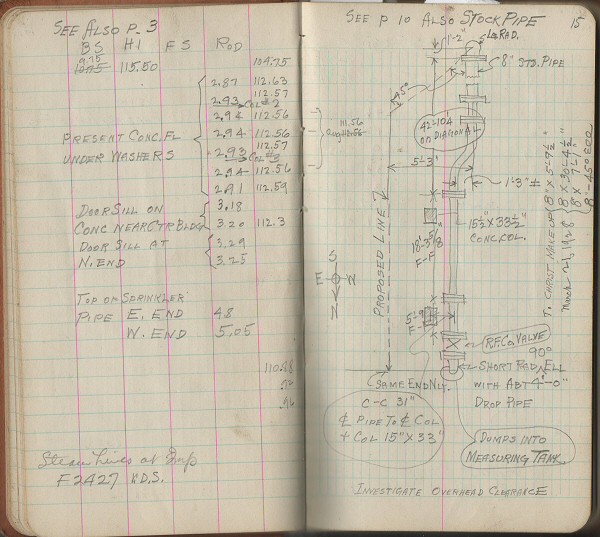 SEE ALSO P. 3
BS HI FS ROD
9.75 104.75
115.50
2.87 112.63
112.57
2.93 COL #2
2.94 112.56
PRESENT CONC. FL 2.94 112.56
112.57
UNDER WASHERS 2.93 COL #3
2.94 112.56
2.91 112.59
DOOR SILL ON 3.18
CONC NEAR CTR BLDG 3.20 112.3
DOOR SILL AT 3.29
N. END 3.25
TOP OF SPRINKLER
PIPE E. END 4.8
W. END 5.05
Steam Lines at
F2427 K.D.S.
SEE P 10 ALSO STOCK PIPE 15
1'-2"
RAD.
8" STD. PIPE
45°
111.56
42-104
ON DIAGONAL
5'-3"
1'-3" ±
PROPOSED LINE
15½" X 33½"
CONC. COL.
18'-3⅝"
F-F
S
E W
N
5'-9"
F-F
R.F.CO. VALVE
90°
SHORT RAD. ELL
WITH ABT 4'-0"
DROP PIPE
SAME END NLY.
C-C 31"
℄ PIPE TO ℄ COL
+ COL 15" X 33½"
DUMPS INTO
MEASURING TANK.
INVESTIGATE OVERHEAD CLEARANCE
T. CHRIST, MAKE UP
8" X 5'-9½"
8" X 30'-4½"
8" X 7'-4½"
8"-45° ECO
March 21, 1928